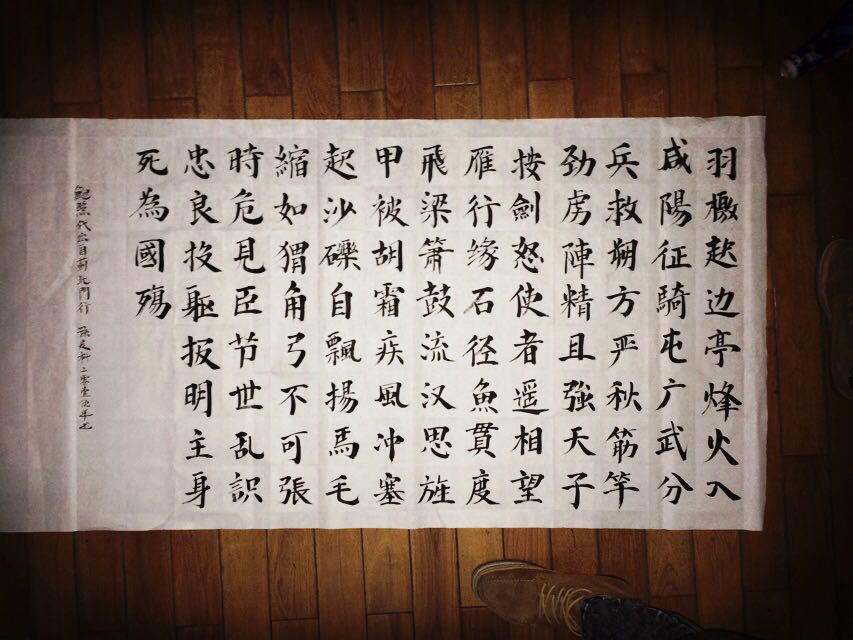 羽檄起边亭烽火入
咸陽征騎屯广武分
兵救朔方严秋筋竿
劲虏陣精且強天子
按劍怒使者遥相望
雁行缘石径魚貫度
飛梁箫鼓流汉思旌
甲被胡霜疾風冲塞
起沙礫自飄揚馬毛
縮如猬角弓不可張
時危見臣节世乱識
忠良投軀报明主身
死為國殤
鮑照代出自薊北門行 二零壹伍年七